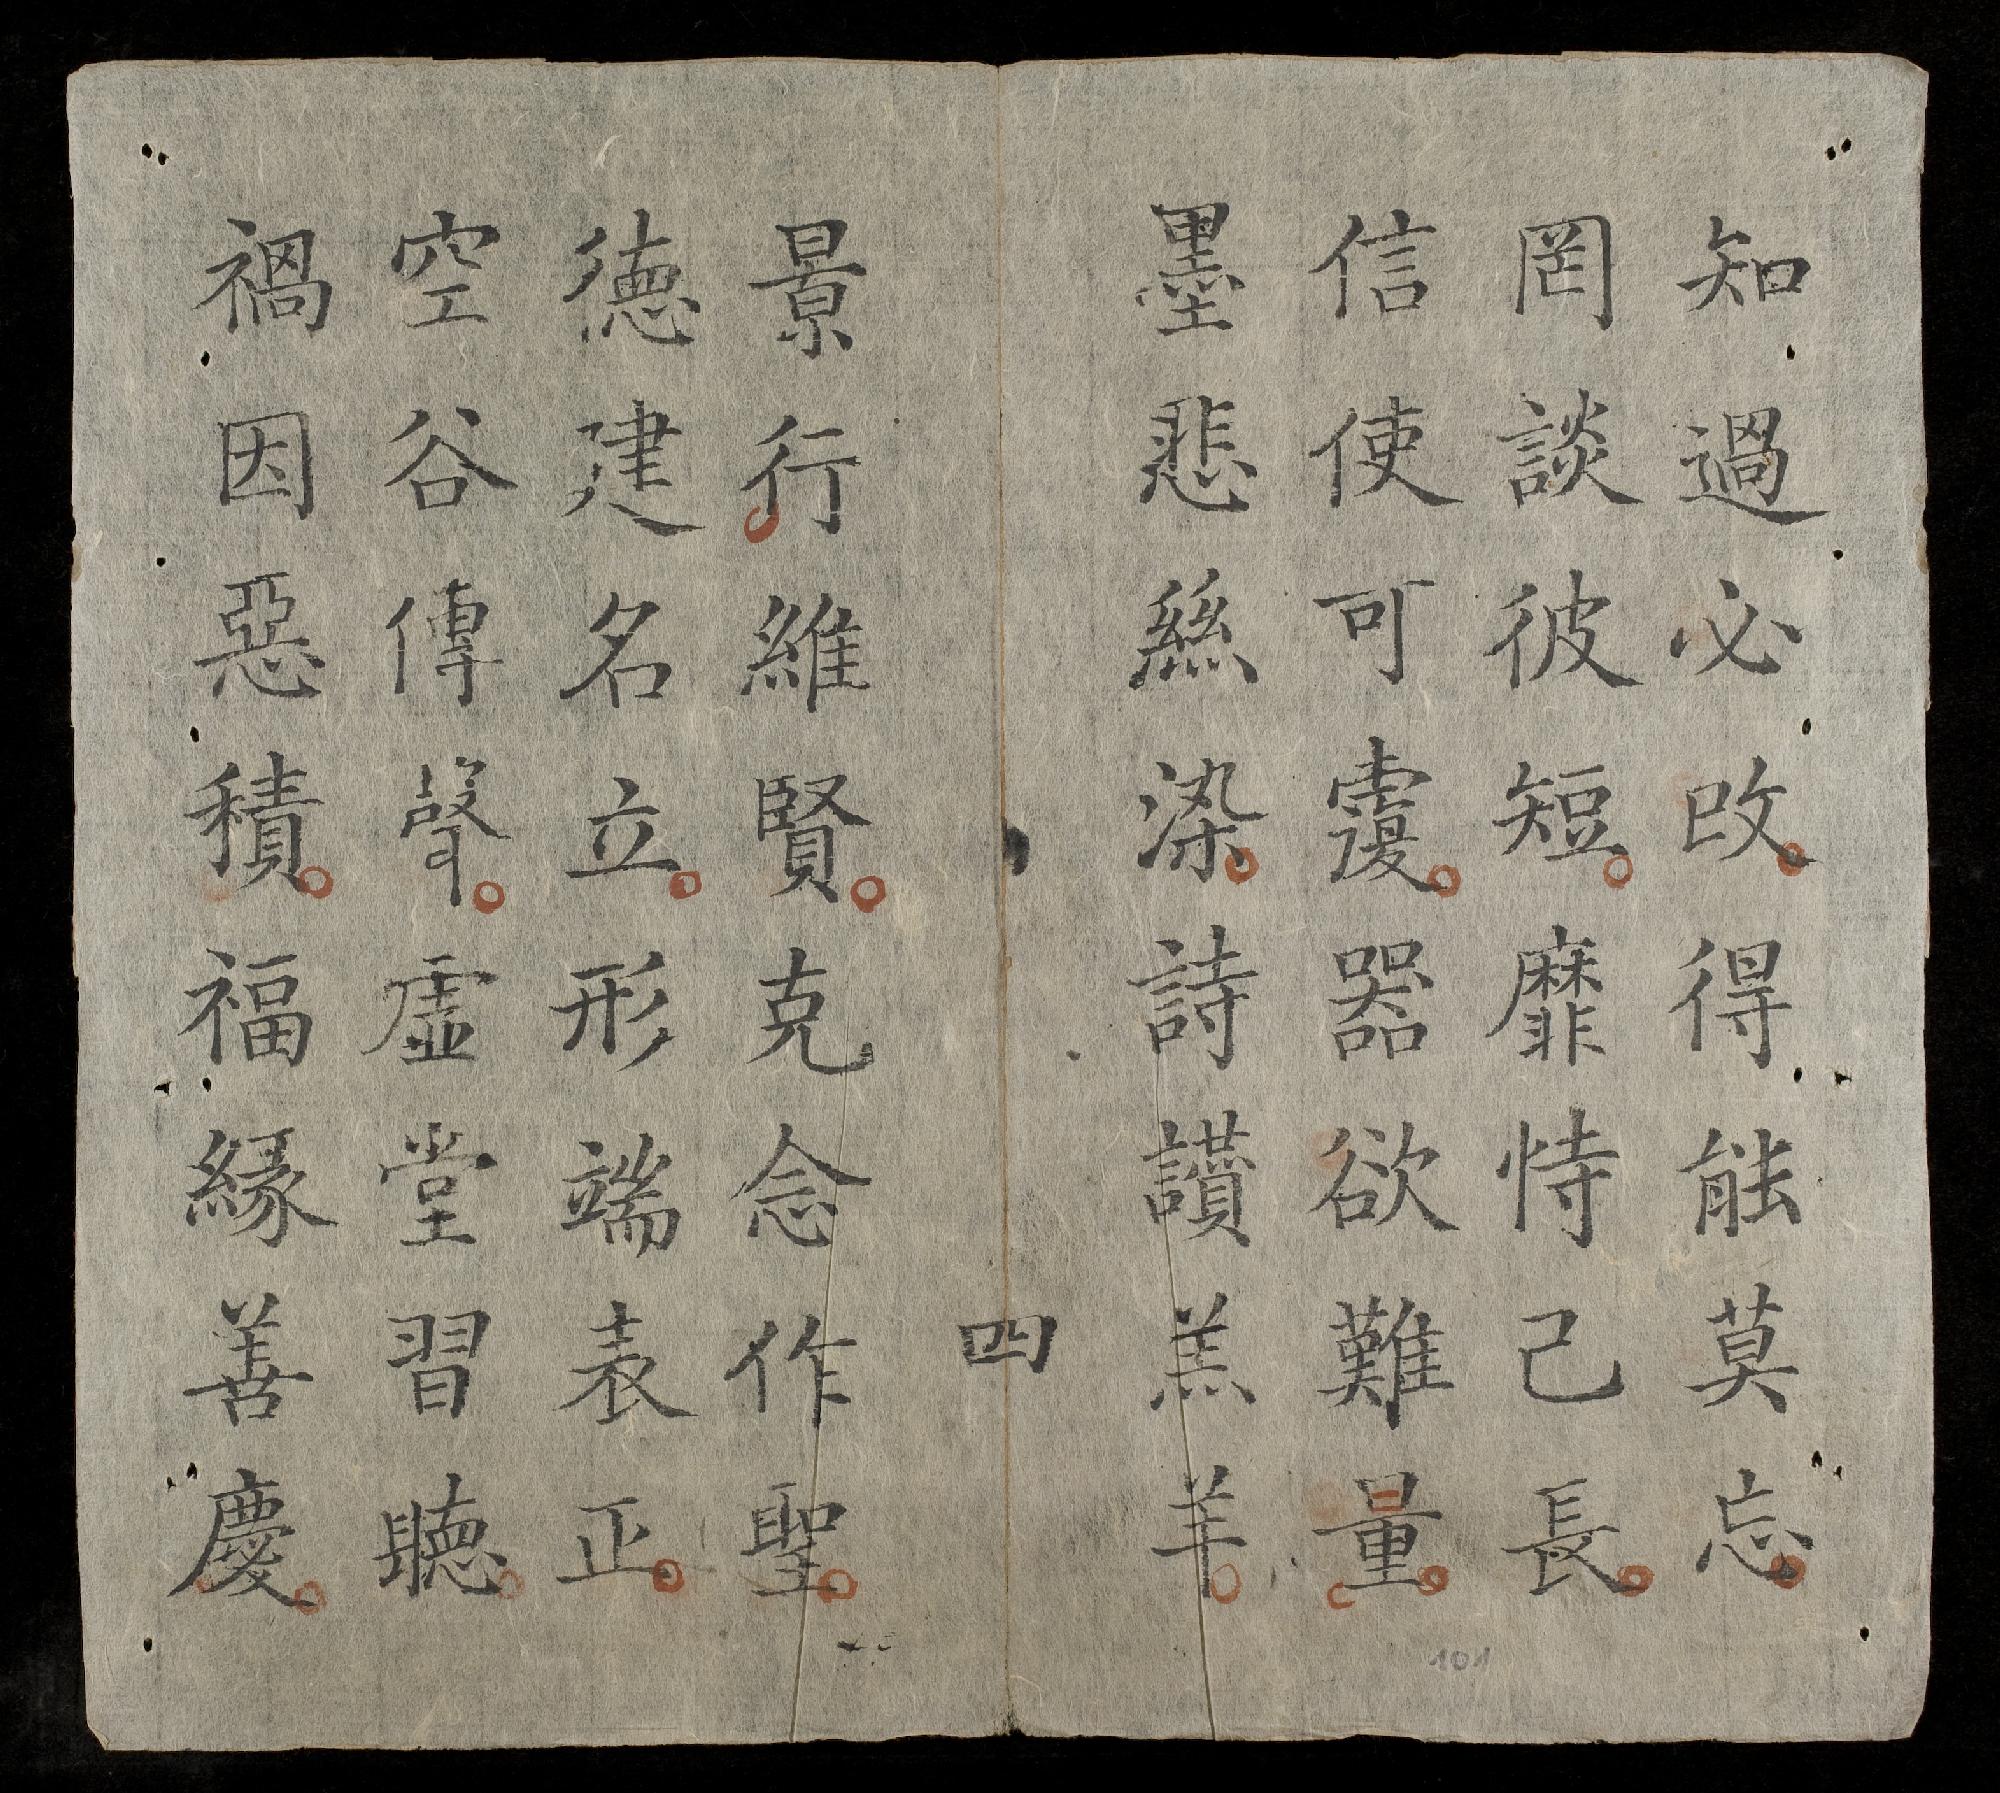 知過必改得能莫忘
罔談彼短靡恃己長
信使可覆器欲難量
墨悲絲染詩讃羔羊
四
景行維賢克念作聖
德建名立形端表正
空谷傳聲虛堂習聽
禍因惡積福緣善慶
101